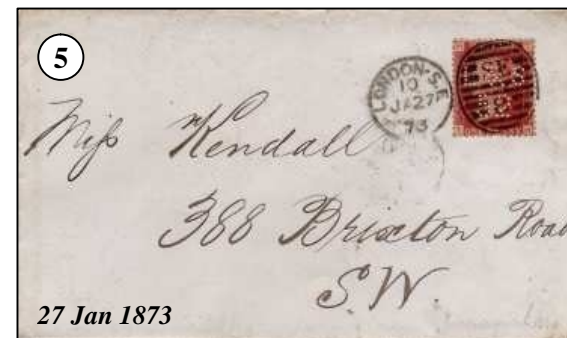 5
LONDON·S.E
10
JA27
73
Miſs Kendall
388 Brixton Road
S.W.
27 Jan 1873